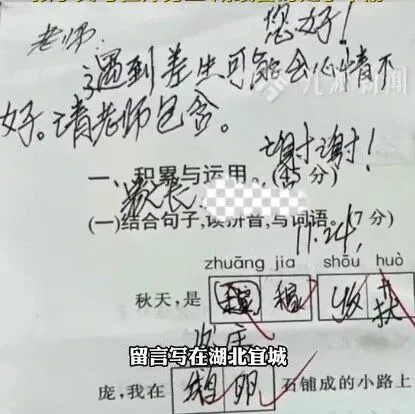 老师：您好！
遇到差生可能会心情不
好。请老师包含。
谢谢！
九派新闻
一、积累与运用。(45分)
家长
11.24.
(一)结合句子，读拼音，写词语。(7分)
zhuāng jia shōu huò
秋天，是 收获
留言写在湖北宜城
庞，我在 鹅卵 石铺成的小路上